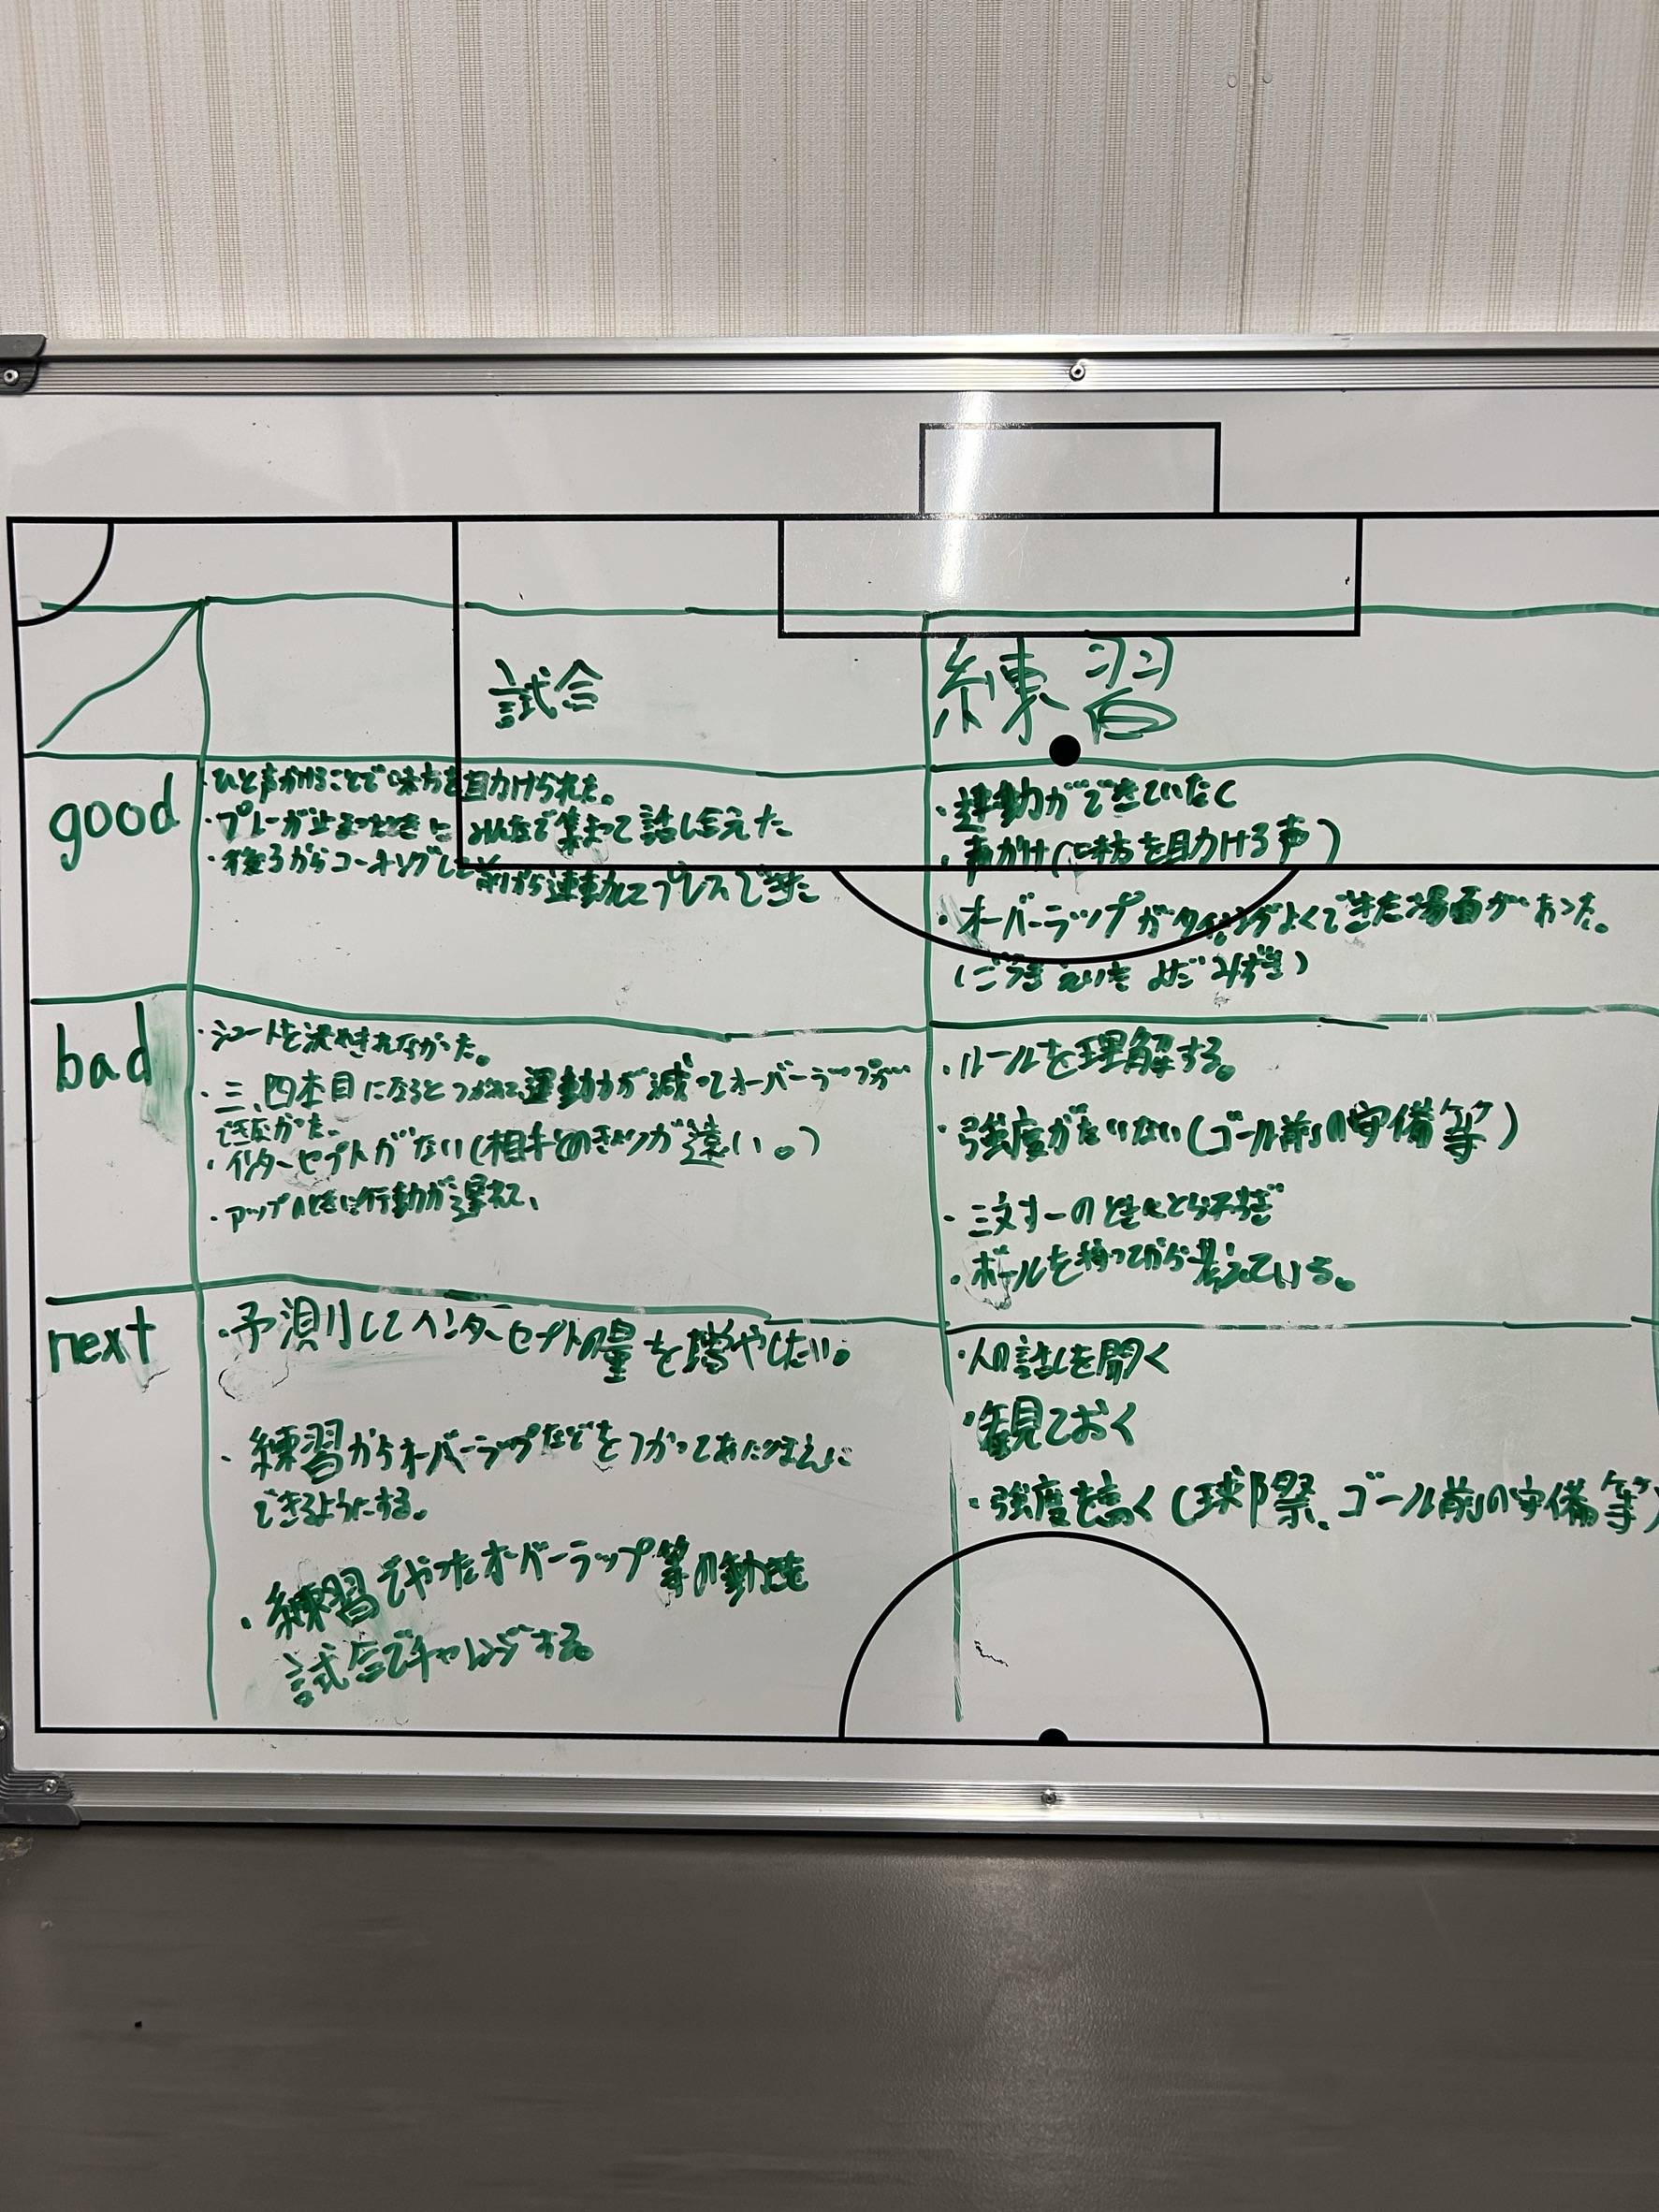 試合
練習
good
・ひと声かけることで味方を助けられた。
・プレーが止まったときに みんなで集まって話し合えた
・後ろからコーチングして前から連動してプレスできた
・連動ができていた
・声かけ(味方を助ける声)
・オーバーラップがタイミングよくできた場面があった。
bad
・シュートを決めきれなかった。
・三、四本目になるとつかれて運動力が減ってオーバーラップが
できなかった。
・インターセプトがない(相手とのきょりが遠い。)
・アップのときに行動が遅れて、
・ルールを理解する。
・強度がたりない(ゴール前の守備等)
・三対一のとき
・ボールを持ってから考えている。
next
・予測してインターセプトの量を増やしたい。
・練習からオーバーラップなどをつかってあたりまえに
できるようにする。
・練習でやったオーバーラップ等の動きを
試合でチャレンジする。
・人の話しを聞く
・観ておく
・強度を高く(球際、ゴール前の守備等)